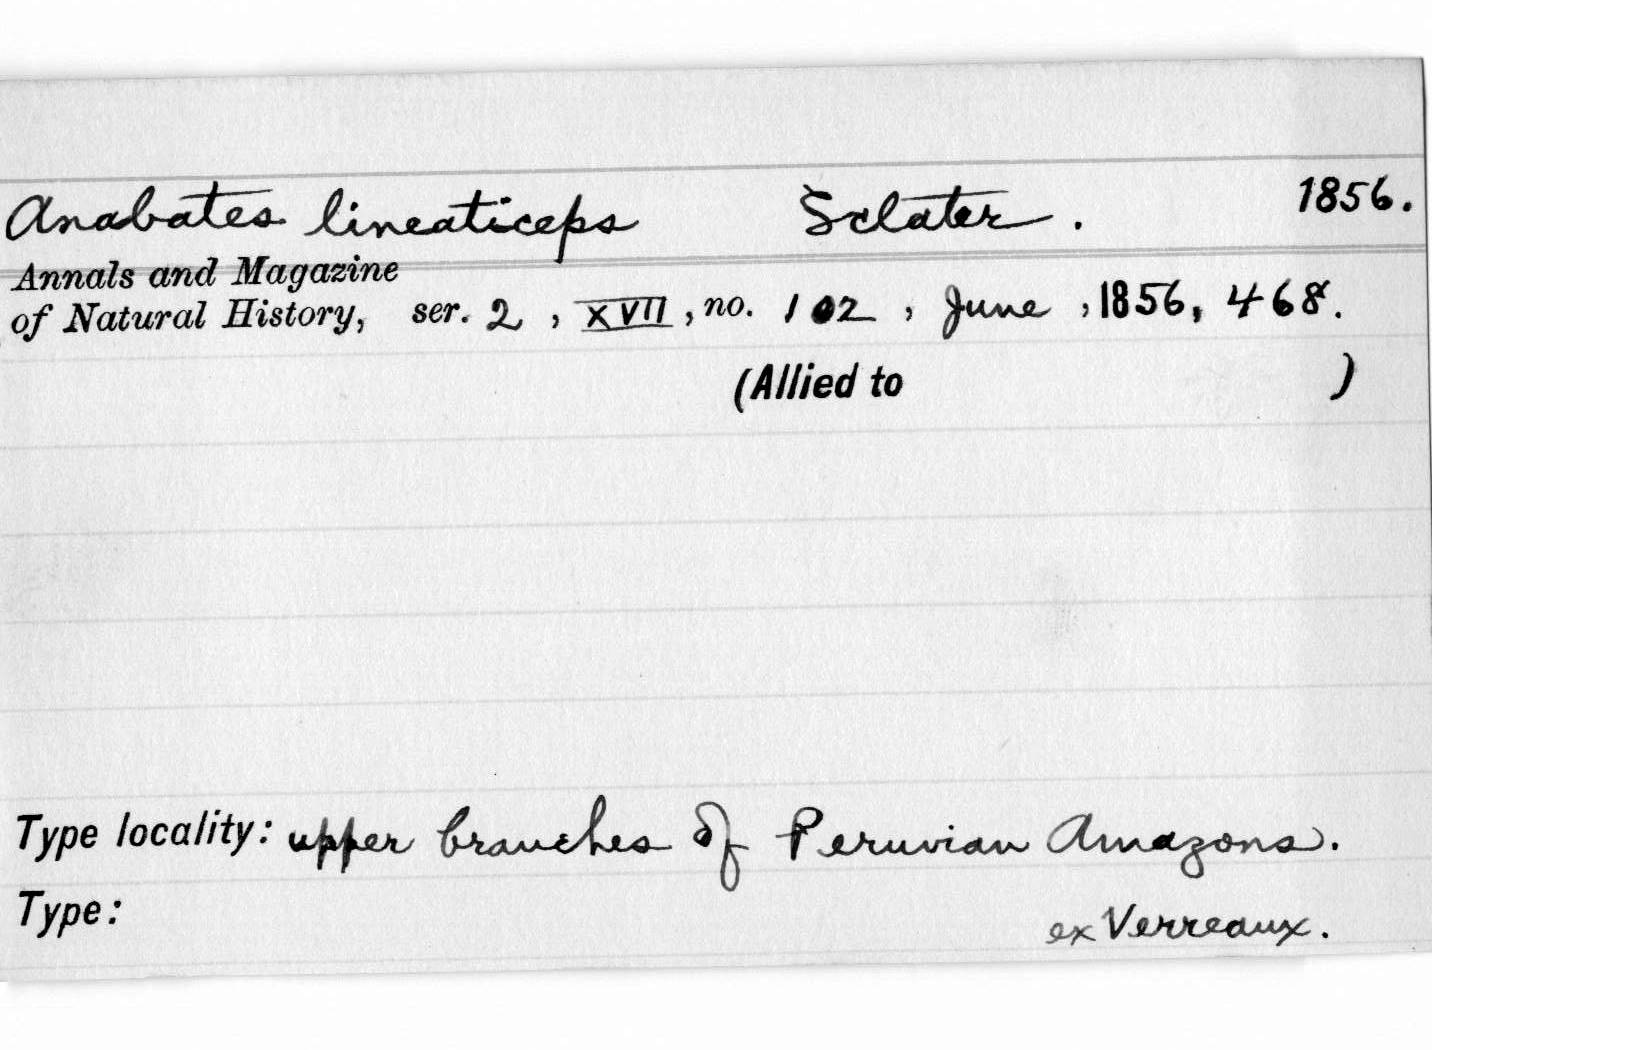 Anabates lineaticeps Sclater. 1856.
Annals and Magazine
of Natural History, ser. 2, XVII, no. 102, June, 1856, 468.
(Allied to )
Type locality: upper branches of Peruvian Amazons.
Type: ex Verreaux.